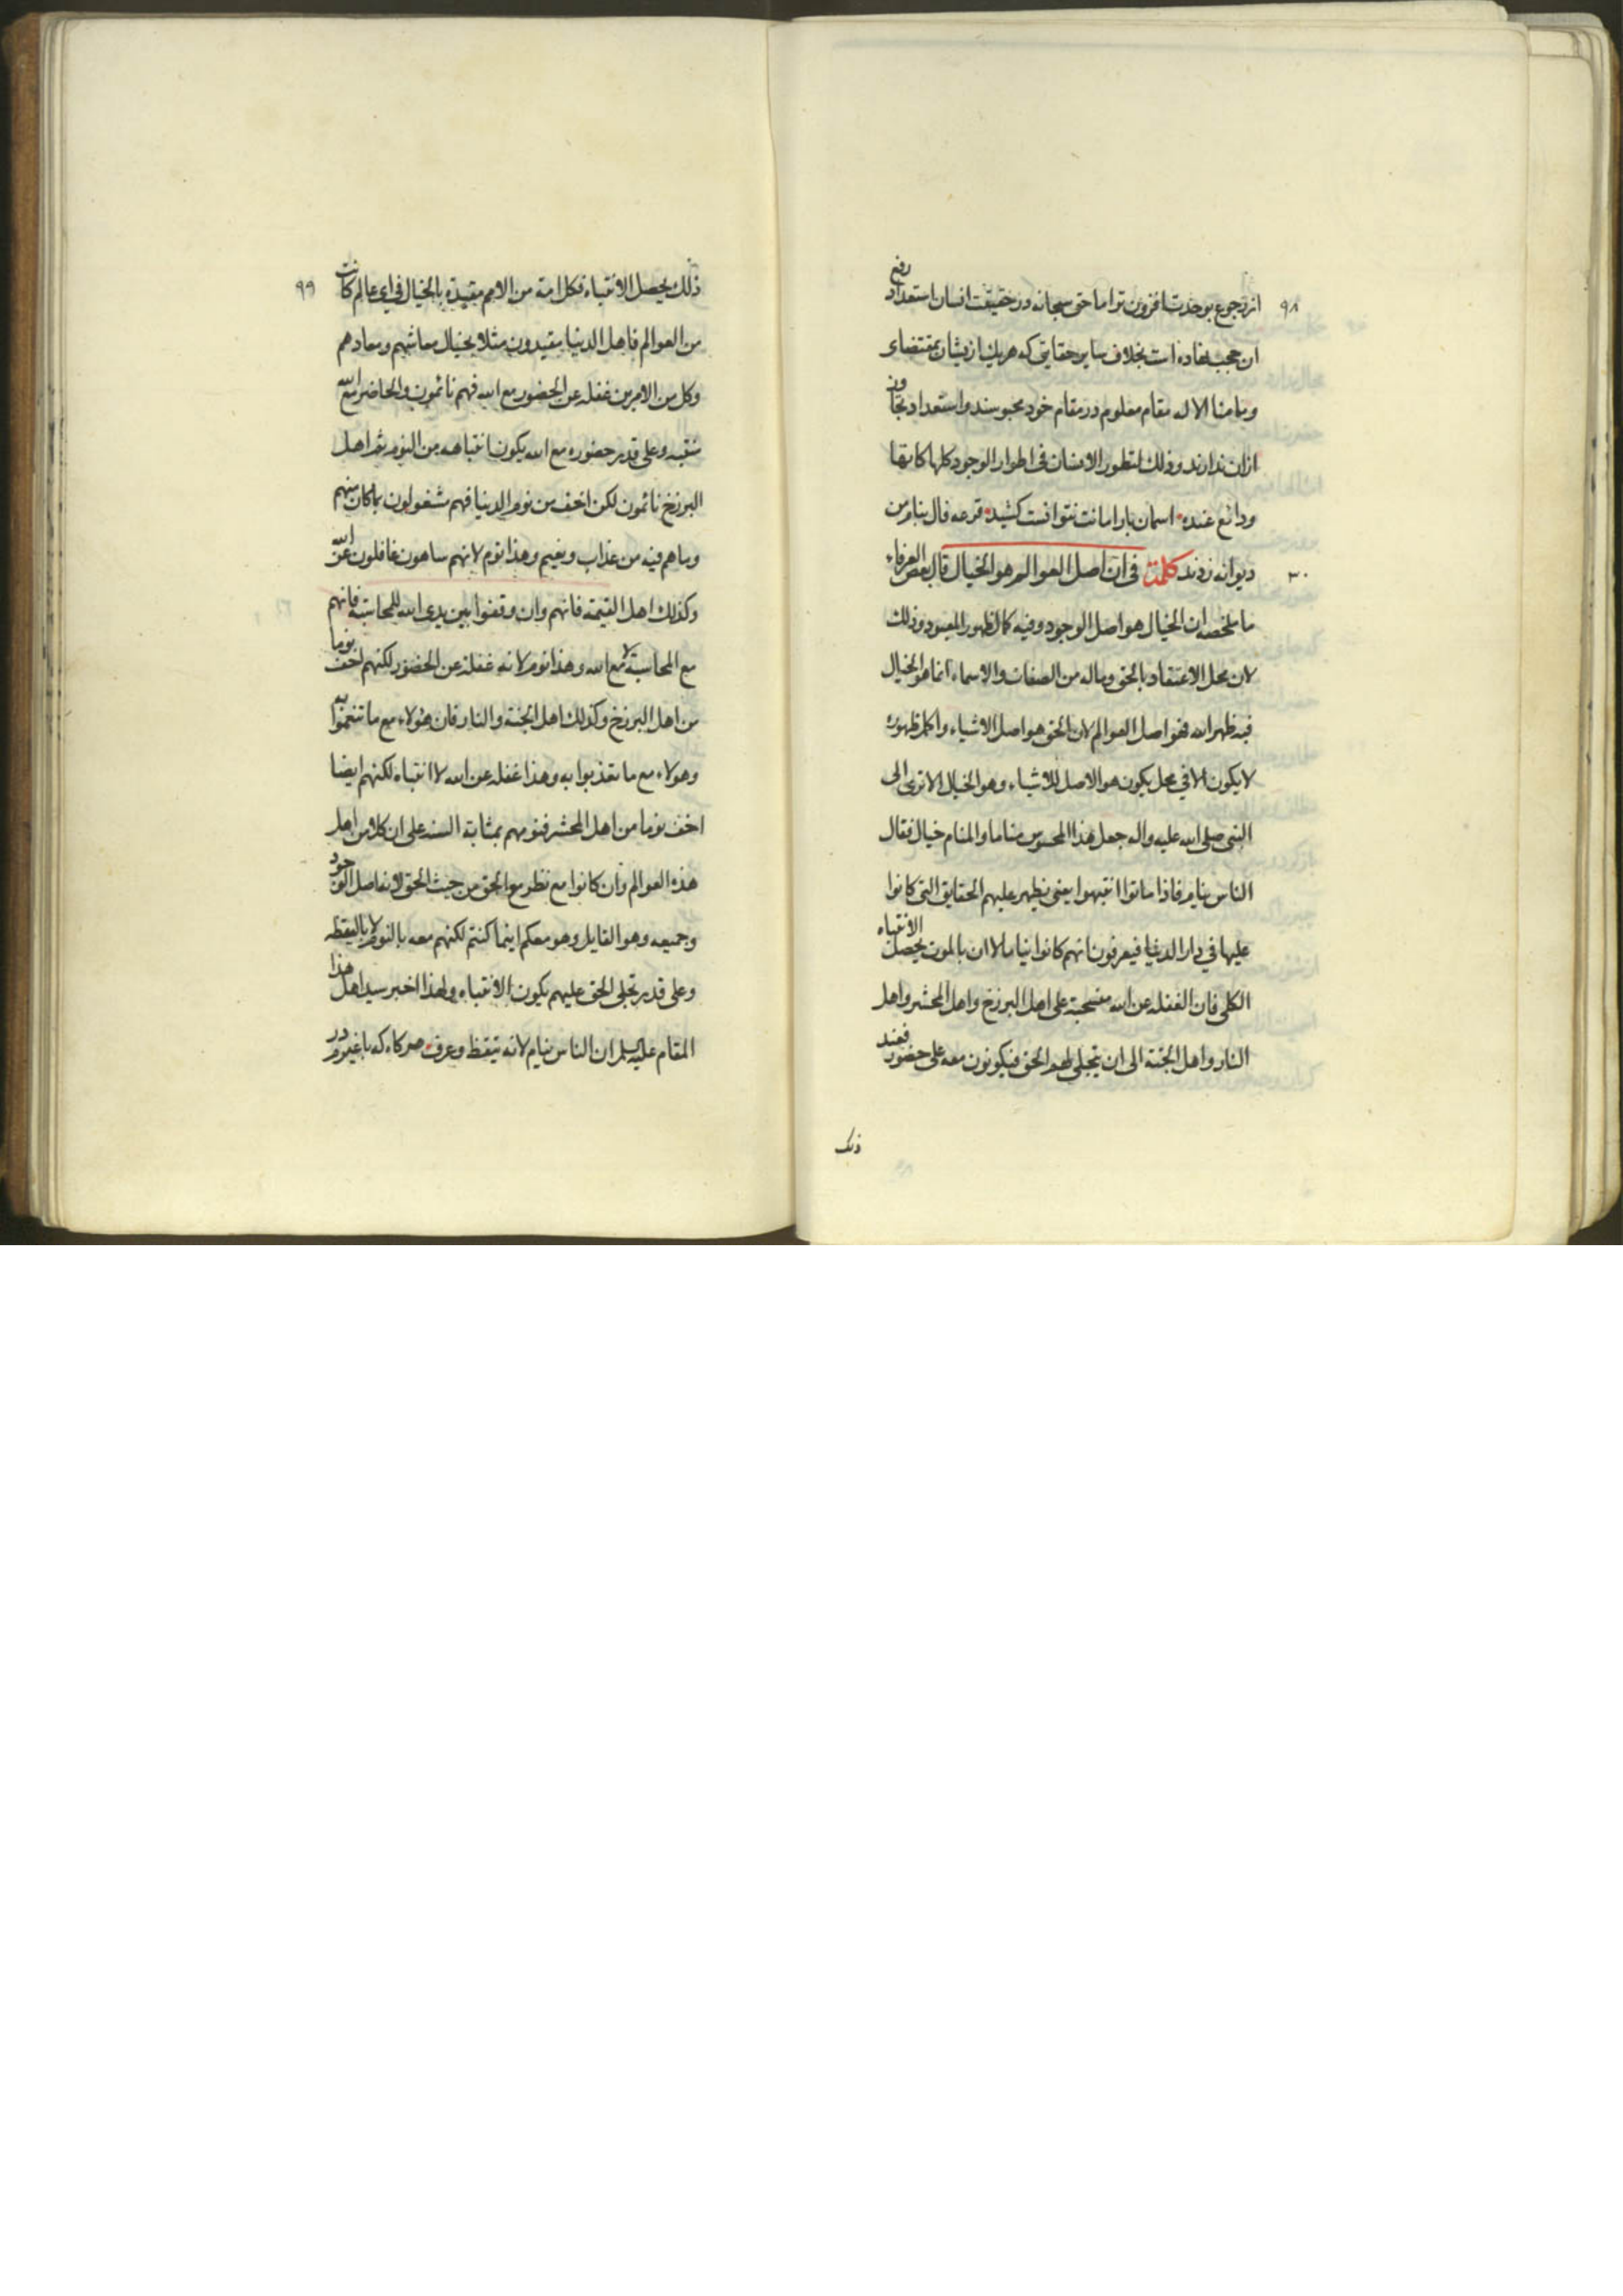 ۹۸
از رجوع بوحدت افزون تر اما حق سبحانه در حقیقت انسان استعداد رفع
ان حجب نهاده است بخلاف سایر حقایق که هر یک از یشان بمقتضای
وما منا الا له مقام معلوم در مقام خود محبوسند و استعداد تجاوز
ازان ندارند وذلك لتطور الانسان فی اطوار الوجود کلها کانها
ودائع عنده اسمان بار امانت نتوانست کشید قرعه فال بنام من
۳۰
دیوانه زدند كلمة فی ان اصل العوالم هو الخیال قال بعض العرفاء
ما ملخصه ان الخیال هو اصل الوجود وفیه کمال ظهور المعبود وذلك
لان محل الاعتقاد بالحق وماله من الصفات والاسماء انما هو الخیال
فبه ظهر الله فهو اصل العوالم لان الحق هو اصل الاشیاء واکمل ظهوره
لا یکون الا فی محل یکون هو الاصل للاشیاء وهو الخیال الا تری الی
النبی صلی الله علیه واله جعل هذا المحسوس مناما والمنام خیال فقال
الناس نیام فاذا ماتوا انتبهوا یعنی یظهر علیهم الحقایق التی کانوا
علیها فی دار الدنیا فیعرفون انهم کانوا نیاما لا ان بالموت یحصل الانتباه
الکلی فان الغفلة عن الله منسحبة علی اهل البرزخ واهل المحشر واهل
النار واهل الجنة الی ان یتجلی لهم الحق فیکونون معه علی حضور فعند
ذلك
۹۹
ذلك یحصل الانتباه فکل امة من الامم مقیدة بالخیال فی ای عالم کانت
من العوالم فاهل الدنیا مقیدون مثلا بخیال معاشهم ومعادهم
وکل من الامرین غفلة عن الحضور مع الله فهم نائمون والحاضر مع الله
منتبه وعلی قدر حضوره مع الله یکون انتباهه من النوم ثم اهل
البرزخ نائمون لکن اخف من نوم الدنیا فهم مشغولون بما کان منهم
وما هم فیه من عذاب ونعیم وهذا نوم لانهم ساهون غافلون عن الله
وکذلك اهل القیمة فانهم وان وقفوا بین یدی الله للمحاسبة فانهم
مع المحاسبة لا مع الله وهذا نوم لانه غفلة عن الحضور لکنهم اخف نوما
من اهل البرزخ وکذلك اهل الجنة والنار فان هؤلاء مع ما تنعموا به
وهولاء مع ما تعذبوا به وهذا غفلة عن الله لا انتباه لکنهم ایضا
اخف نوما من اهل المحشر فنومهم بمثابة السنة علی ان کلا من اهل
هذه العوالم وان کانوا مع نظر مع الحق من حیث الحق لانه اصل الوجود
وجمیعه وهو القایل وهو معکم اینما کنتم لکنهم معه بالنوم لا بالیقظه
وعلی قدر تجلی الحق علیهم یکون الانتباه ولهذا اخبر سید اهل هذا
المقام علیه السلم ان الناس نیام لانه تیقظ وعرف هر کاه که باغیرم در